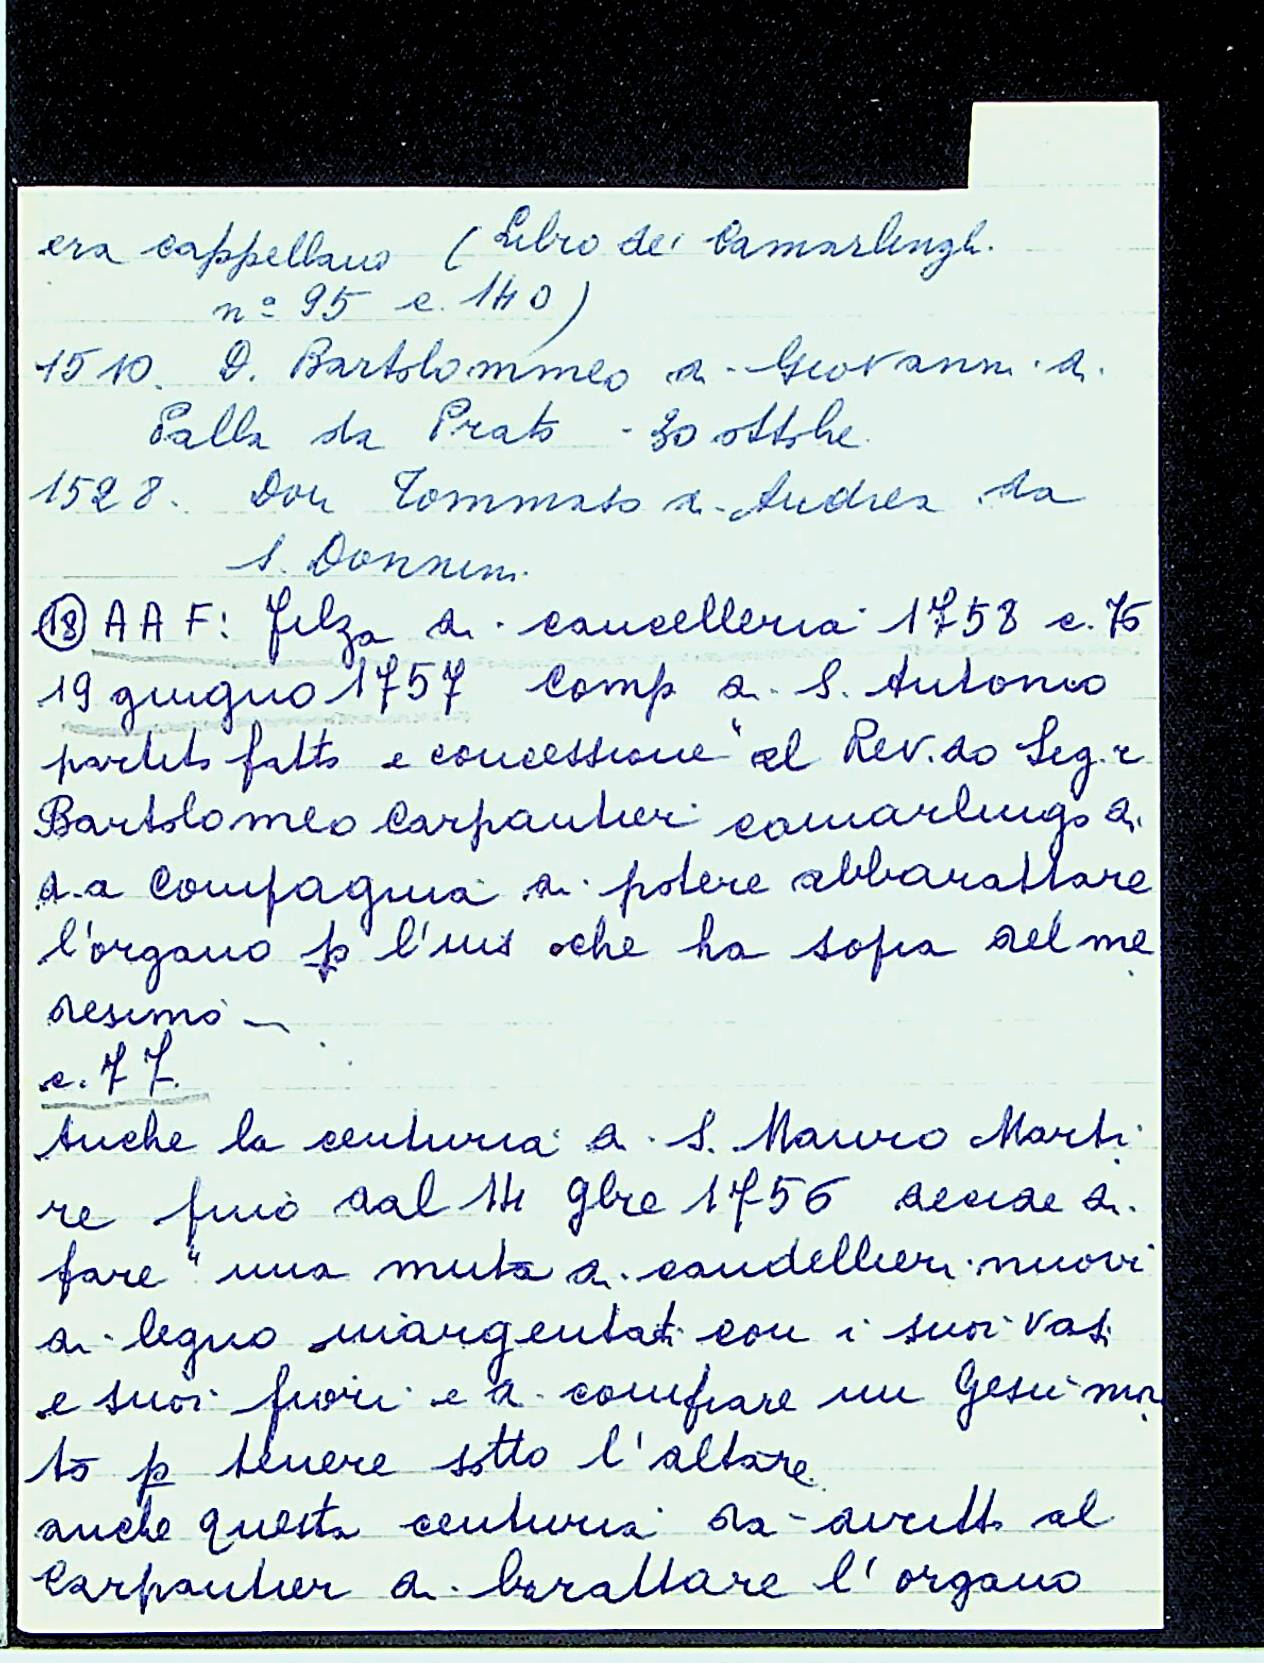 era cappellano (Libro dei Camarlinghi
n° 95 c. 140)
1510. D. Bartolommeo di Giovanni di
Palla da Prato - 30 ottobre
1528. Don Tommaso di Andrea da
S. Donnino
(18) A A F: Filza di cancelleria 1758 c. 76
19 giugno 1757 Comp di S. Antonio
partito fatto e concessione "al Rev.do Sig.r
Bartolomeo Carpantieri camarlingo di
d.a Compagnia di potere abbarattare
l'organo p l'ius che ha sopra del me
desimo
c. 77.
Anche la centuria di S. Mauro Marti
re fino dal 14 9bre 1756 decide di
fare "una muta di candellieri nuovi
di legno inargentati con i suoi vasi
e suoi fiori e di comprare un Gesù mor
to p tenere sotto l'altare
anche questa centuria da diritto al
Carpantier di barattare l'organo